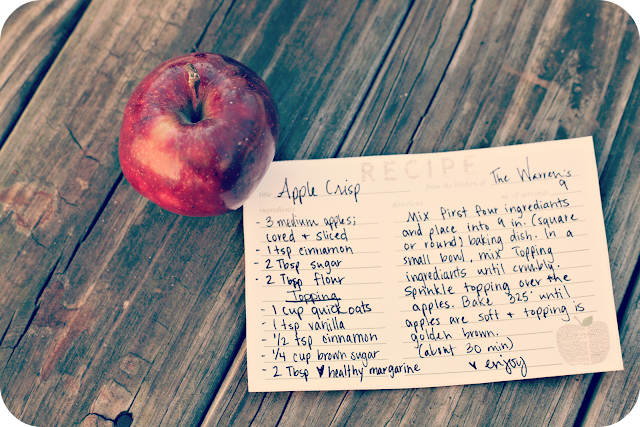 RECIPE
title Apple Crisp
from the kitchen of The Warren's
9
- 3 medium apples;
cored + sliced
- 1 tsp cinnamon
- 2 Tbsp sugar
- 2 Tbsp flour
Topping
- 1 cup quick oats
- 1 tsp vanilla
- 1/2 tsp cinnamon
- 1/4 cup brown sugar
- 2 Tbsp ♥ healthy margarine
directions
Mix first four ingredients
and place into 9 in. (square
or round) baking dish. In a
small bowl, mix Topping
ingredients until crumbly.
Sprinkle topping over the
apples. Bake 325° until
apples are soft + topping is
golden brown.
(about 30 min)
♥ enjoy